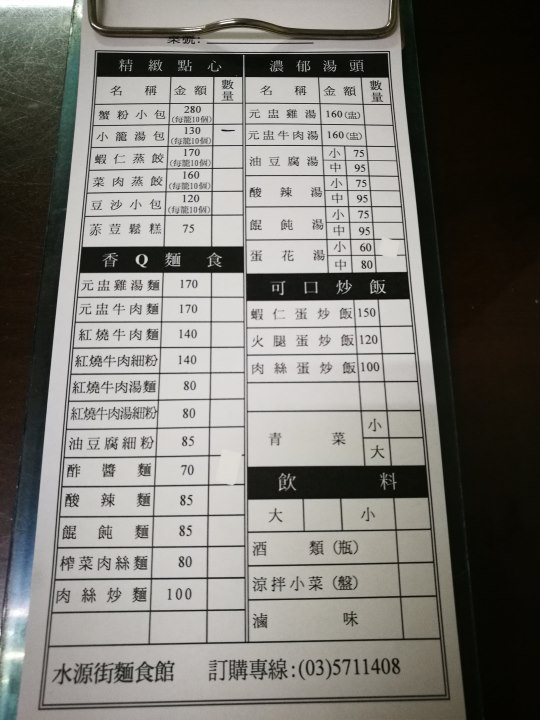 桌號:
精緻點心
名稱 金額 數量
蟹粉小包 280 (每籠10個)
小籠湯包 130 (每籠10個) 一
蝦仁蒸餃 170 (每籠10個)
菜肉蒸餃 160 (每籠10個)
豆沙小包 120 (每籠10個)
茶荳鬆糕 75
香Q麵食
元盅雞湯麵 170
元盅牛肉麵 170
紅燒牛肉麵 140
紅燒牛肉細粉 140
紅燒牛肉湯麵 80
紅燒牛肉湯細粉 80
油豆腐細粉 85
酢醬麵 70
酸辣麵 85
餛飩麵 85
榨菜肉絲麵 80
肉絲炒麵 100
濃郁湯頭
名稱 金額 數量
元盅雞湯 160(盅)
元盅牛肉湯 160(盅)
油豆腐湯 小 75
中 95
酸辣湯 小 75
中 95
餛飩湯 小 75
中 95
蛋花湯 小 60
中 80
可口炒飯
蝦仁蛋炒飯 150
火腿蛋炒飯 120
肉絲蛋炒飯 100
青菜 小
大
飲料
大 小
酒類(瓶)
涼拌小菜(盤)
滷味
水源街麵食館 訂購專線:(03)5711408